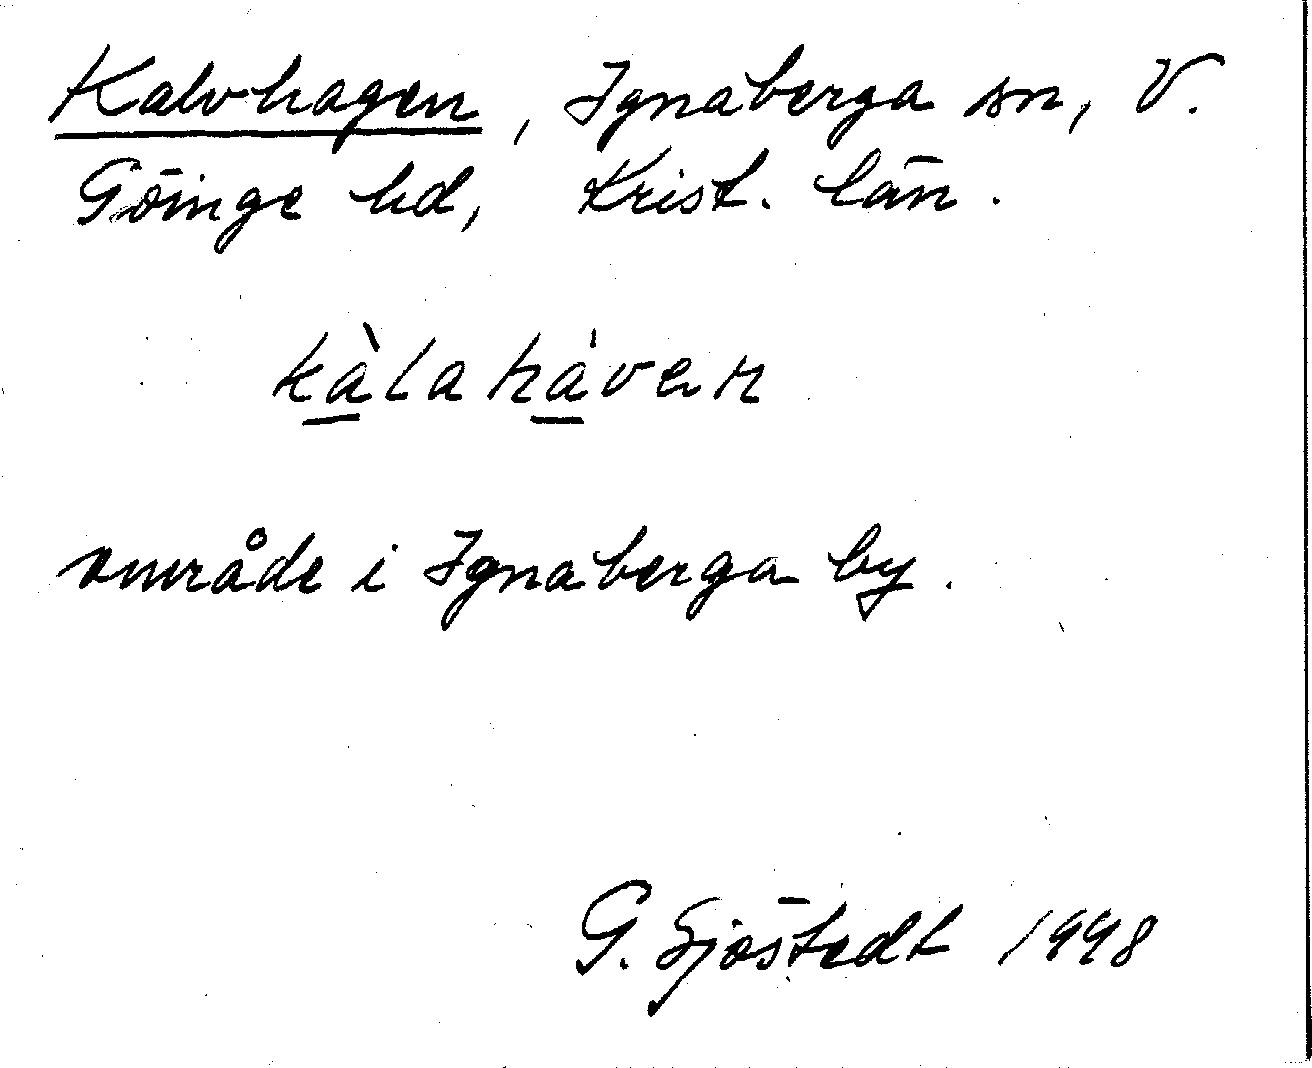 Kalvhagen, Ignaberga sn, V.
Göinge hd, Krist. län.
kàlahávan
område i Ignaberga by.
G. Sjöstedt 1948